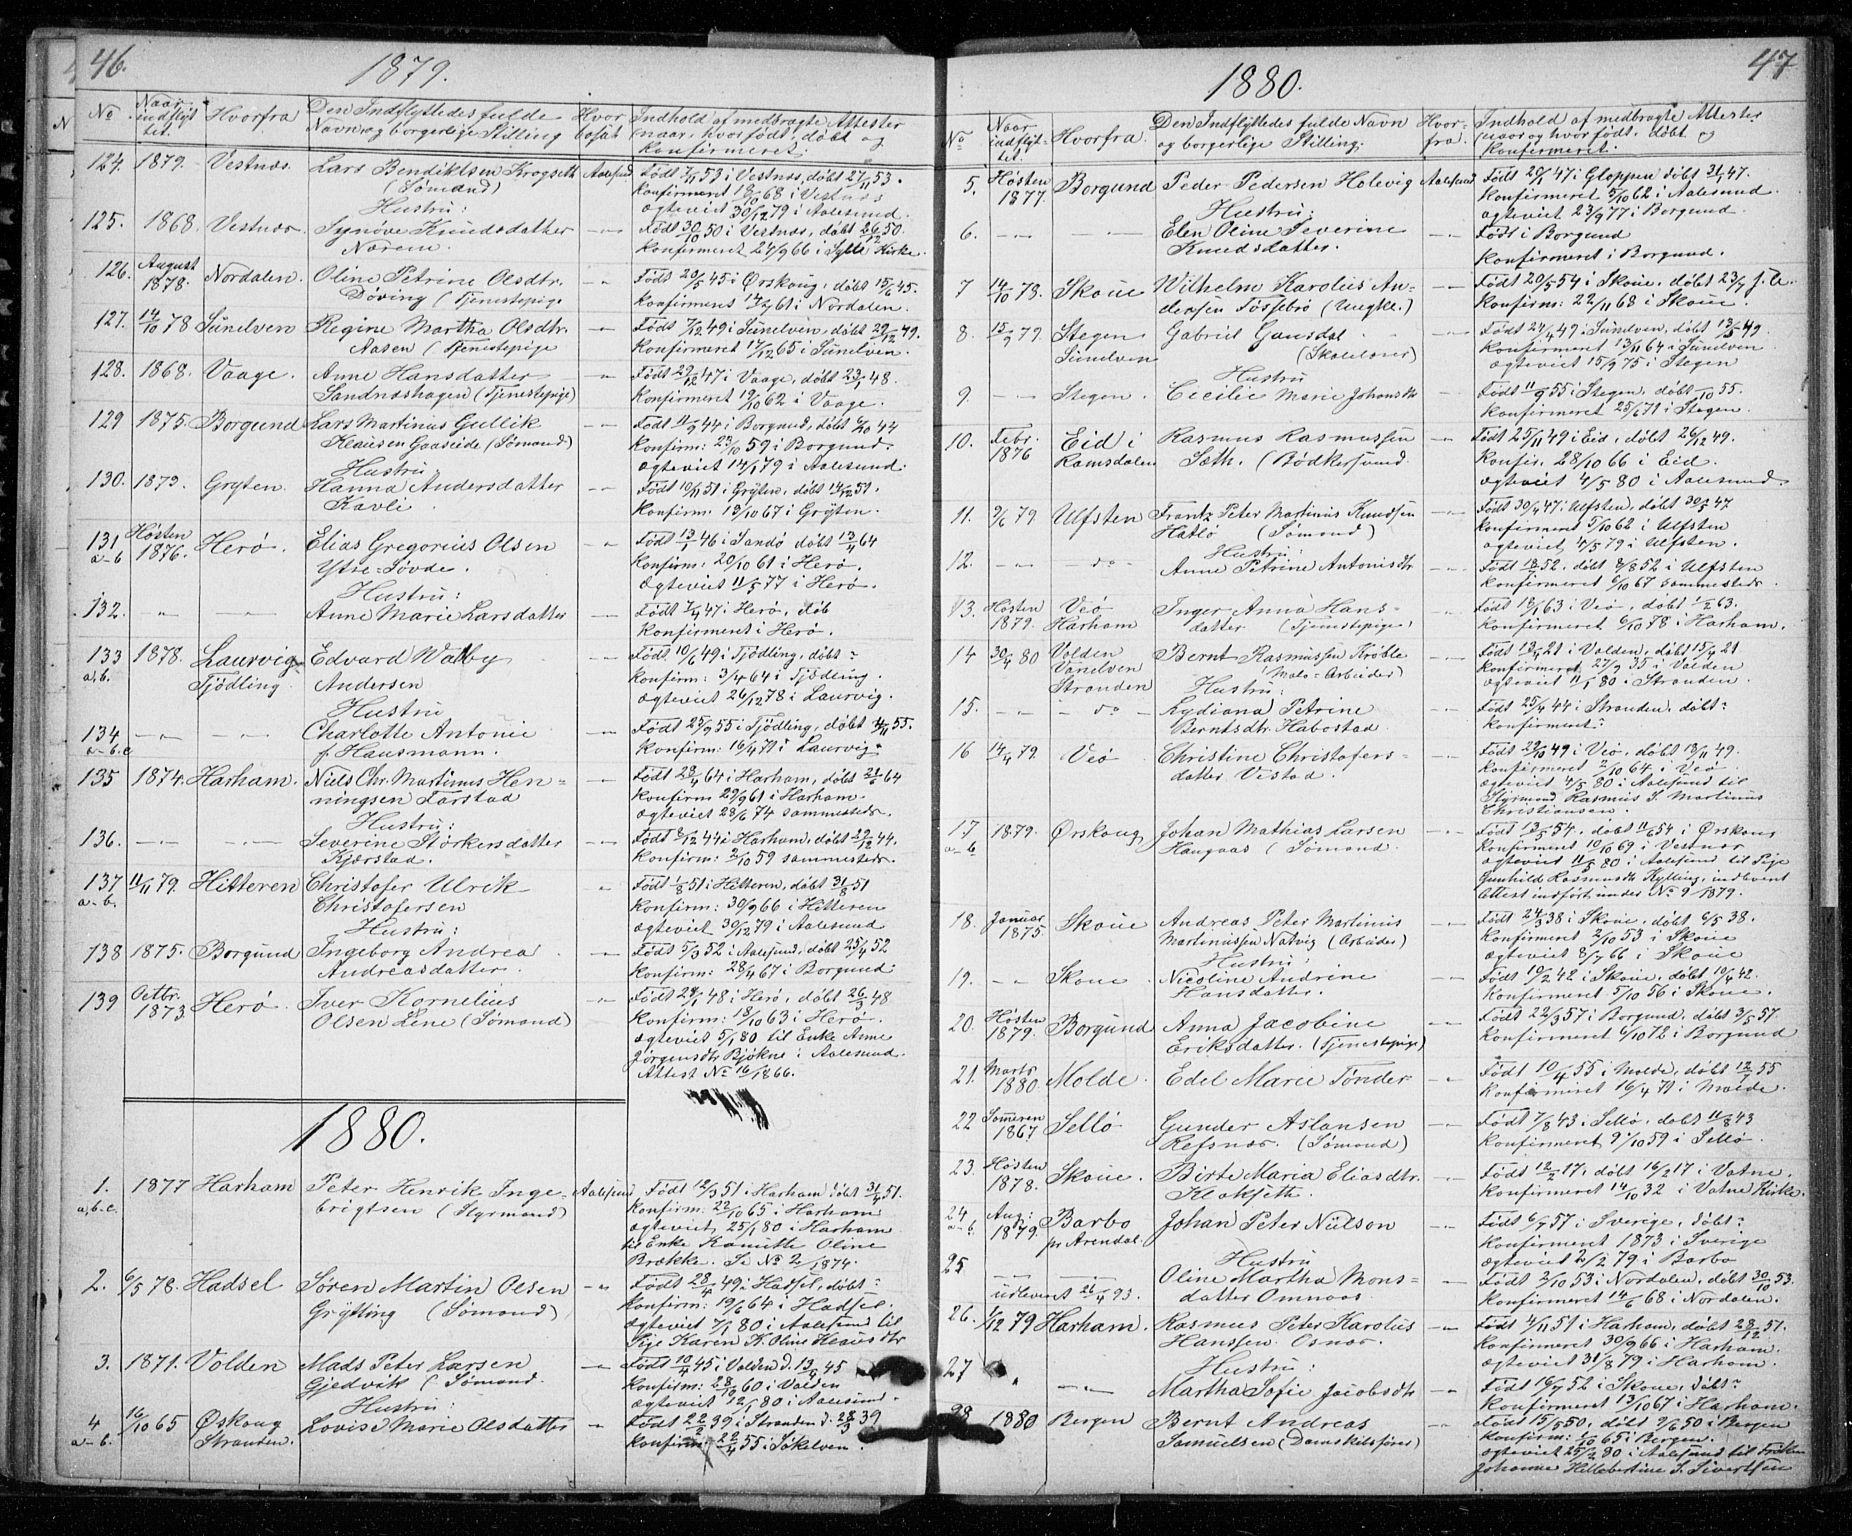 46.
1879.
No
Naar indflyttet.
Hvorfra
Den Indflyttedes fulde Navn og borgerlige Stilling
Hvor bosat
Indhold af medbragte Attester naar, hvor født, døbt og konfirmeret.
124. 1879. Vestnæs. Lars Bendiktsen Krogsæth Aalesund Født 7/11 53 i Vestnæs, døbt 27/11 53.
(Sømand) Konfirmeret 18/10 68 i Vestnæs
Hustru: ægteviet 30/12 79 i Aalesund.
125. 1868. Vestnæs. Synøve Knudsdatter Født 30/10 50 i Vestnæs, døbt 26/12 50.
Konfirmeret 27/9 66 i Sylte Kirke.
126. August 1878. Nordalen. Oline Petrine Olsdtr. Født 20/5 45 i Ørskoug, døbt 15/6 45.
Døving (Tjenestepige Konfirmeret i Nordalen.
127. 14/10 78 Sünelven Regine Martha Olsdtr. Født 7/12 49 i Sünelven, døbt 29/12 49.
Aasen (Tjenestepige Konfirmeret 17/12 65 i Sünelven.
128. 1868. Vaage. Anne Hansdatter Født 29/12 47 i Vaage, døbt 23/1 48.
Sandnæshagen (Tjenestepige) Konfirmeret 19/10 62 i Vaage.
129 1875. Borgund Lars Martinus Gullik Født 11/9 44 i Borgund, døbt 44
Klausen Gaaseide (Sømand) Konfirm: 23/10 59 i Borgund.
Hustru ægteviet 14/1 79 i Aalesund.
130. 1879. Gryten. Hanna Andersdatter Født 10/11 51 i Grÿten, døbt 14/12 51.
Kavli Konfirm: 13/10 67 i Grÿten.
131 a-b Høsten 1876. Herø. Elias Gregorius Olsen Født 13/1 46 i Sandø døbt 13/4 64
Ytse-Søvde. Konfirm: 20/10 61 i Herø.
Hustru: Ægteviet 11/5 77 i Herø.
132. Anne Marie Larsdatter Født 7/4 47 i Herø, døb
Konfirmeret i Herø.
133 a, b. 1878. Laurvig Edvard Walby Født 10/6 49 i Tjödling, døbt
Tjödling Andersen Konfirm: 3/4 64 i Tjödling.
Hustru ægteviet 26/12 78 i Laurvig.
134 a-b.c Charlotte Antonie Født 25/9 55 i Tjödling, døbt 4/11 55.
f. Hausmann. Konfirm: 16/4 71 i Laurvig.
135 1874. Harham. Niels Chr. Martinus Hen- Født 28/4 64 i Harham, døbt 21/5 64
ningsen Farstad Konfirm 29/9 61 i Harham.
Hustru: ægteviet 28/6 74 sammesteds.
136. Severine Størkersdatter Født 8/12 44 i Harham, døbt 29/12 44.
Kjærstad. Konfirm: 2/10 59 sammesteds.
137 a-b. 11/11 79. Hitteren Christofer Ulrik Født 1/8 51 i Hitteren, døbt 31/8 51
Christofersen Konfirm: 30/9 66 i Hitteren
Hustru: ægteviet 30/12 79 i Aalesund
138 1875. Borgund Ingeborg Andrea Født 5/3 52 i Aalesund, døbt 25/4 52
Andreasdatter. Konfirm: 28/4 67 i Borgund
139 Octbr. 1873. Herø. Iver Kornelius Født 29/1 48 i Herø, døbt 26/3 48
Olsen Lene (Sømand) Konfirm: 18/10 63 i Herø.
ægteviet 5/1 80 til Enke Anne
Jørgensdtr Bjøkne i Aalesund.
Attest No 16/1866.
1880.
1. a, b. c. 1877 Harham Peter Henrik Inge- Aalesund Født 12/3 51 i Harham døbt 31/4 51.
brigtsen (Styrmand) Konfirm: 22/10 65 i Harham
ægteviet 25/1 80 i Harham
til Enke Kanutte Oline
Brække. Se No 2/1874.
2. 6/5 78. Hadsel Søren Martin Olsen Født 28/4 49 i Hadsel, døbt
Grÿtting (Sømand) Konfirm: 19/6 64 i Hadsel.
ægteviet 7/1 80 i Aalesund til
Pige Karen K. Oline
3. 1871. Volden Mads Peter Larsen Født 10/4 45 i Volden d. 13/4 45
Gjedvik (Sømand. Konfirm: 28/10 60 i Volden
Hustru: ægteviet 12/1 80 i Aalesund.
4 a-b. 16/10 65 Øskoug Lovise Marie Olsdatter Født 22/2 39 i Stranden d. 28/3 39
Stranden. Konfirm: 22/4 55 i Søkelven.
47
1880.
No
Naar indflyttet.
Hvorfra.
Den Indflyttedes fulde Navn og borgerlige Stilling;
Hvorfra.
Indhold af medbragte Attester naar og hvor født, døbt og konfirmeret.
5. Høsten 1877. Borgund Peder Pedersen Holevig Aalesund Født 20/1 47 i Gloppen døbt 31/1 47.
Hustru: Konfirmeret 5/10 62 i Aalesund.
ægteviet 23/9 77 i Borgund.
6. Elen Oline Severine Født i Borgund
Knudsdatter. Konfirmeret i Borgund.
7 14/10 78. Skoue Wilhelm Karolius An- Født 20/5 54 i Skoue, døbt 23/7 s. A.
dersen Fossebrø (Ungkl.) Konfirm: 22/11 68 i Skoue.
8. 15/9 79. Stegen Gabriel Gausdal Født 24/4 49 i Sünelven, døbt 13/5 49.
Sünelven (Skolelærer) Konfirmeret 13/11 64 i Sünelven
Hustru ægteviet 15/9 75 i Stegen
9. Stegen. Cecilie Marie Johansdtr Født 11/9 55 i Stegen, døbt 7/10 55.
Konfirmeret 25/6 71 i Stegen.
10. Febr. 1876 Eid i Rasmus Rasmussen Født 25/11 49 i Eid, døbt 26/12 49.
Romsdalen Sæth. (Bødkersvend. Konfir. 28/10 66 i Eid.
ægteviet 4/5 80 i Aalesund.
11. 9/6 79. Ulfsten Frantz Peter Martinus Knudsen Født 30/4 47 i Ulfsten, døbt 30/5 47
Hatlø (Sømand) Konfirmeret 5/10 62 i Ulfsten
Hustru: ægteviet 4/5 79 i Ulfsten.
12. do Anne Petrine Antonisdtr Født 18/7 52. døbt 8/8 52 i Ulfsten
Konfirmeret 6/10 67 sammesteds.
13. Høsten 1879. Veø Inger Anna Hans- Født 18/1 63 i Veø, døbt 1/2 63.
Harham datter (Tjenestepige) Konfirmeret 6/10 78 i Harham.
14 30/4 80 Volden Bernt Rasmussen Krøble Født 13/4 21 i Volden, døbt 15/4 21
Vanelven (Molo-Arbeider) Konfirmeret 27/9 35 i Volden
Stranden Hustru: ægteviet 11/1 80 i Stranden.
15. do Lydiana Petrine Født 25/4 44 i Stranden, døbt
Berntsdtr. Habostad Konfirmeret
16 14/4 79. Veø Christine Christofers- Født 22/10 49 i Veø, døbt 13/11 49.
datter Vestad. Konfirmeret 2/10 64 i Veø.
ægteviet 4/5 80 i Aalesund til
Styrmand Rasmus S. Martinus
Christiansen
17 a-b 1879. Ørskoug Johan Mathias Larsen Født 13/5 54, døbt 11/6 54 i Ørskoug
Haugaas (Sømand. Konfirmeret 10/10 69 i Vestnæs
ægteviet 11/5 80 i Aalesund til Pige
Gunhild Rasmusdtr Kylling, indlevert
Attest indført under No 9 1879.
18. Januar 1875 Skoue Andreas Peter Martinus Født 24/3 38 i Skoue, døbt 6/5 38.
Martinussen Natvig (Arbeider) Konfirmeret 2/10 53 i Skoue
Hustru: ægteviet 8/7 66 i Skoue
19. Skoue Nicoline Andrine Født 19/2 42 i Skoue, døbt 10/4 42.
Hansdatter. Konfirmeret 5/10 56 i Skoue.
20. Høsten 1879. Borgund Anna Jacobine Født 22/3 57 i Borgund, døbt 3/5 57.
Eriksdatter. (Tjenestepige) Konfirmeret 6/10 72 i Borgund
21. Marts 1880. Molde. Edel Marie Tønder Født 10/4 55 i Molde, døbt 12/7 55
Konfirmeret 16/4 71 i Molde.
22 Someren 1867 Sellø Gunder Aslansen Født 7/8 43 i Sellø, døbt 11/8 43
Refsnæs. (Sømand) Konfirmeret 9/10 59 i Sellø.
23. Høsten 1878. Skoue. Birte Maria Eliasdtr. Født 12/2 17, døbt 16/2 17 i Vatne.
Kloksett. Konfirmeret 14/10 32 i Vatne Kirke.
24 a-b. Aug: 1879. Barbo Johan Peter Nielson Født 6/7 57 i Sverige, døbt
pr Arendal. Konfirmeret 1873 i Sverige
Hustru ægteviet 2/2 79 i Barbo
25 Oline Martha Mons- Født 3/10 53 i Nordalen, døbt 30/10 53.
udleveret 26/4 93. datter Omnaas Konfirmeret 14/6 68 i Nordalen.
26. 1/12 79 Harham. Rasmus Peter Karolus Født 4/11 51 i Harham, døbt 28/12 51.
Hanssen Osnæs. Konfirmeret 30/9 66 i Harham.
Hustru: ægteviet 31/8 79 i Harham.
27 Martha Sofie Jacobsdtr Født 16/7 52 i Skoue, døbt
Konfirmeret 13/10 67 i Harham.
28 1880 Bergen Bernt Andreas Født 15/5 50, døbt 9/6 50 i Bergen
Samuelsen (Dampskibsfører) Konfirm: 1/10 65 i Bergen.
ægteviet 25/2 80 i Aalesund til Frøken
Johanne Hellebertine S. Sivertsen